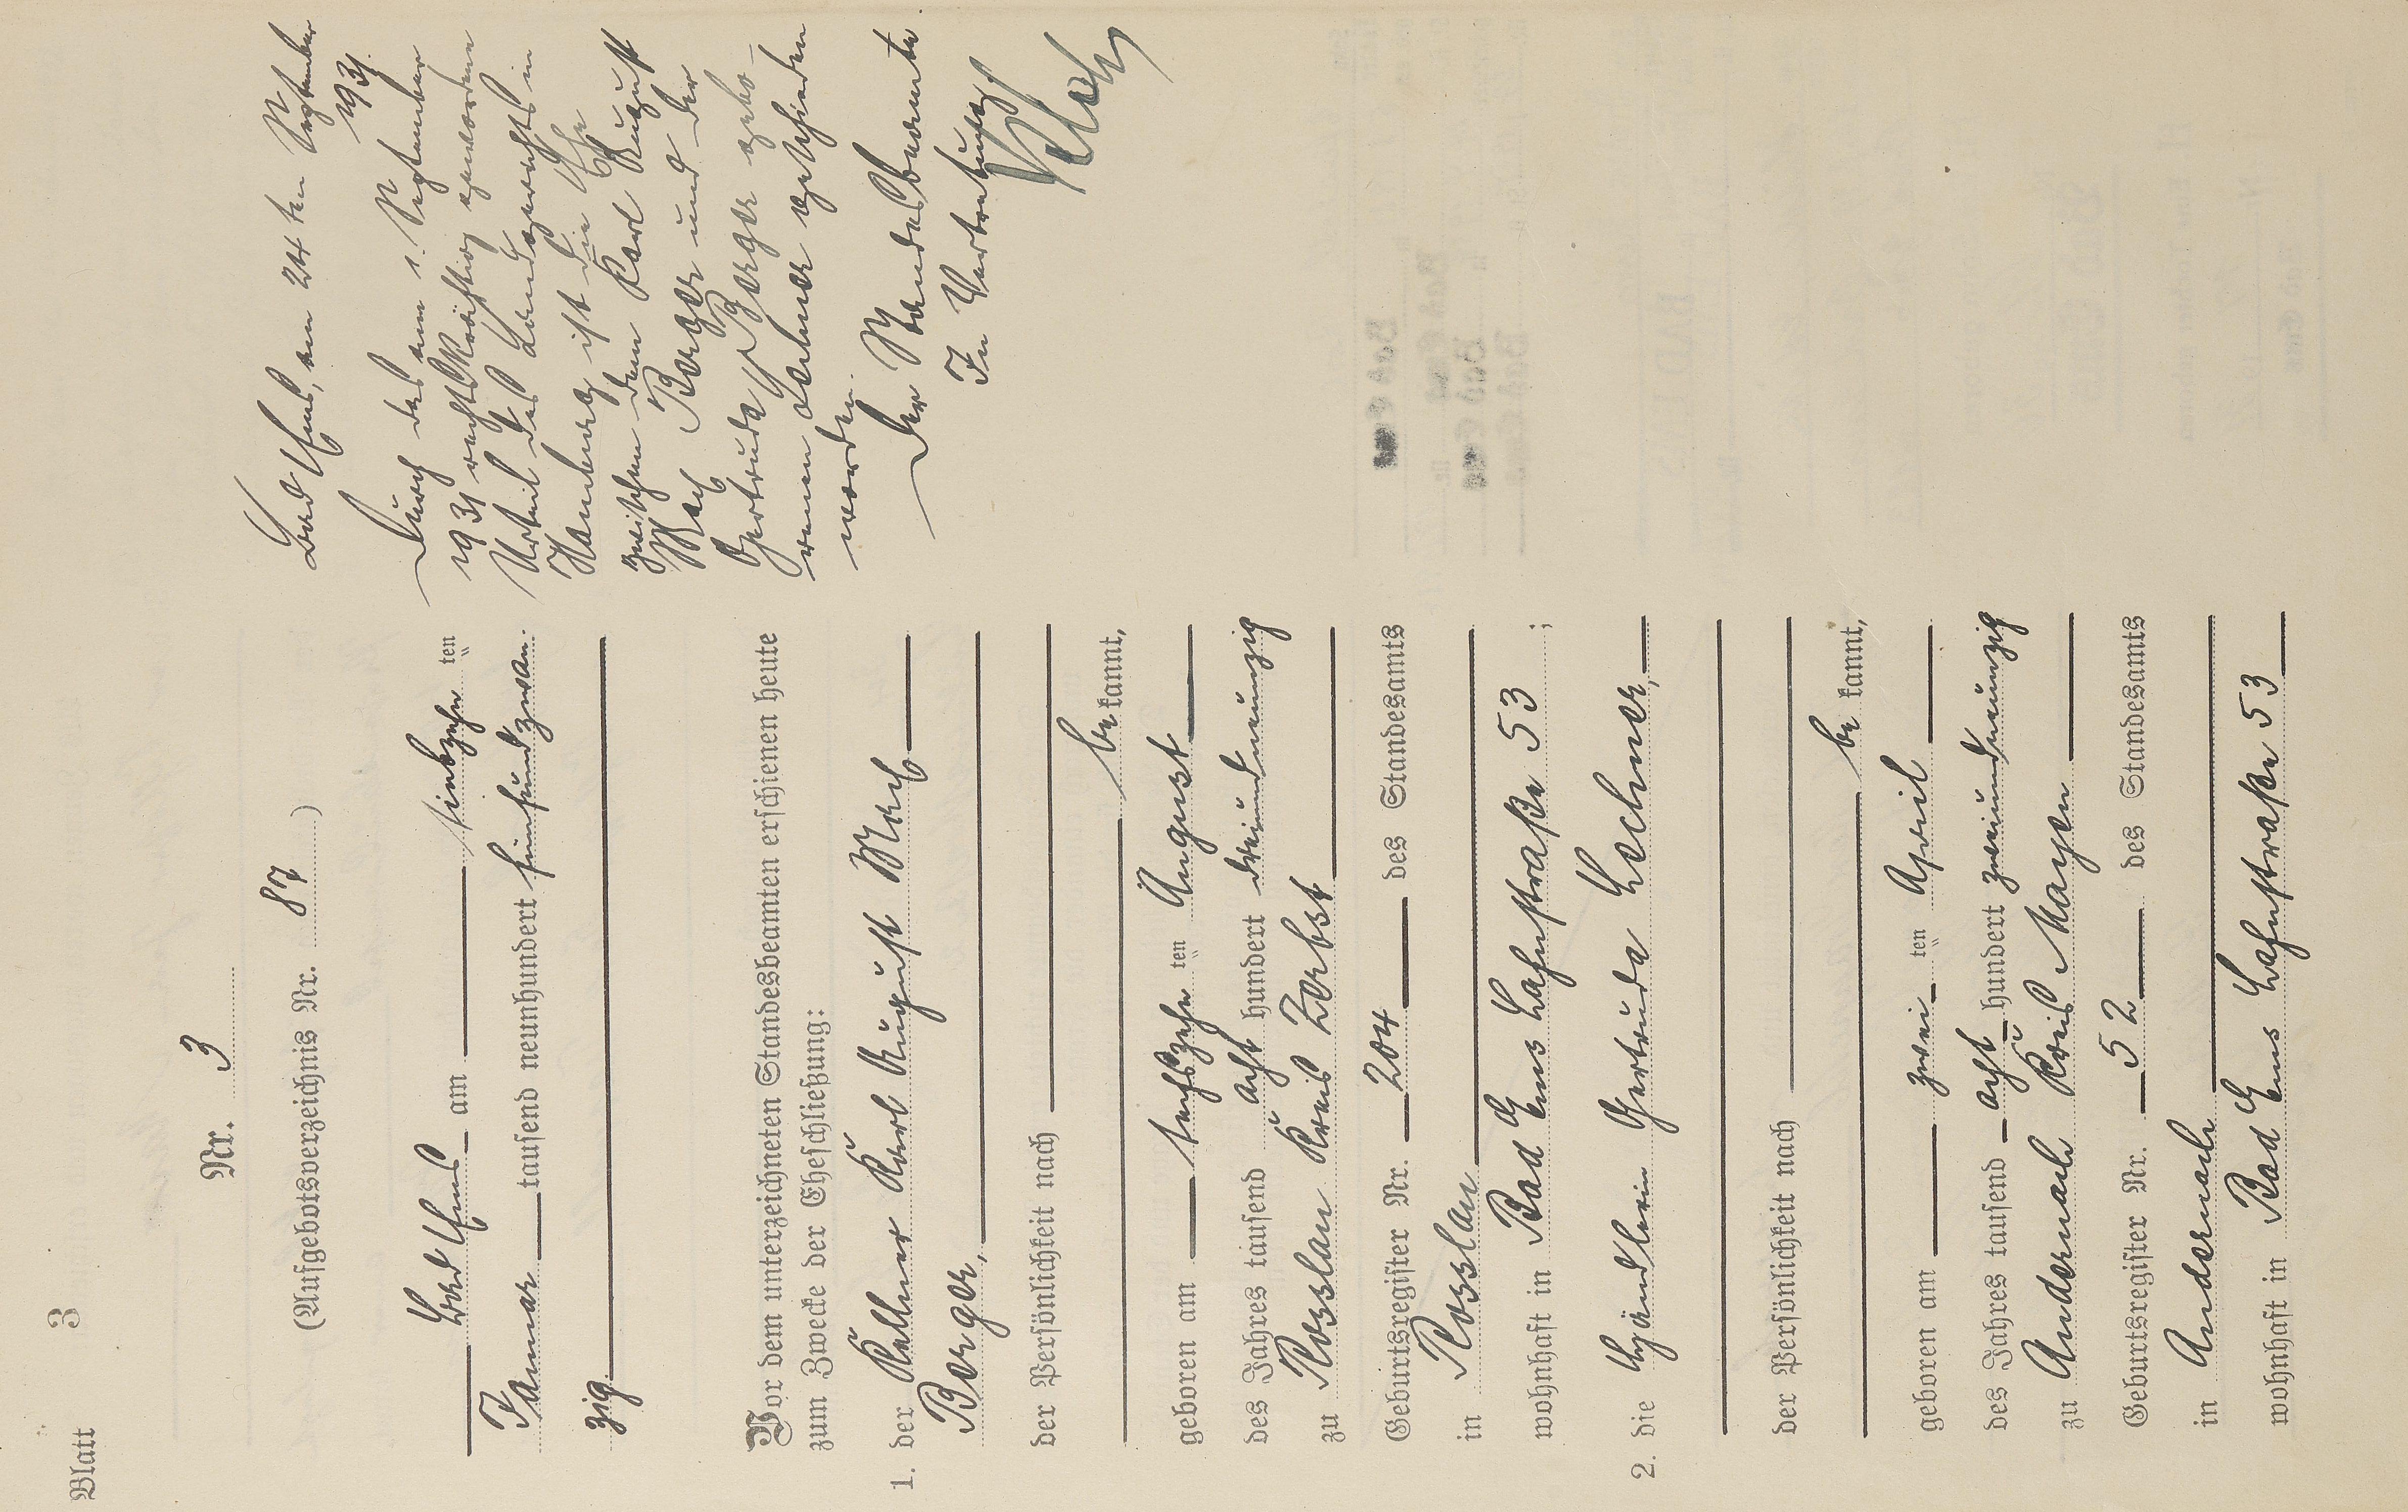 Blatt 3
Nr. 3
(Aufgebotsverzeichnis Nr. 87)
Bad Ems am siebzehn ten
Januar tausend neunhundert fünfundzwan-
zig
Vor dem unterzeichneten Standesbeamten erschienen heute
zum Zwecke der Eheschließung:
1. der Kellner Karl August Max
Berger,
der Persönlichkeit nach
be kannt,
geboren am sechszehn ten August
des Jahres tausend acht hundert dreiundneunzig
zu Rosslau Kreis Zerbst
Geburtsregister Nr. 204 des Standesamts
in Rosslau
wohnhaft in Bad Ems Lahnstraße 53;
2. die Händlerin Gertruda
der Persönlichkeit nach
be kannt,
geboren am zwei ten April
des Jahres tausend acht hundert zweiundneunzig
zu Andernach Kreis Mayen
Geburtsregister Nr. 52 des Standesamts
in Andernach
wohnhaft in Bad Ems Lahnstraße 53
Bad Ems, am 24ten September
1931.
Durch das am 1. September
1931 rechtskräftig gewordene
Urteil des Landgerichts in
Hamburg ist die Ehe
zwischen dem Karl August
Max Berger und der
Gertruda Berger gebo-
renen geschieden
worden.
Der Standesbeamte
In Vertretung